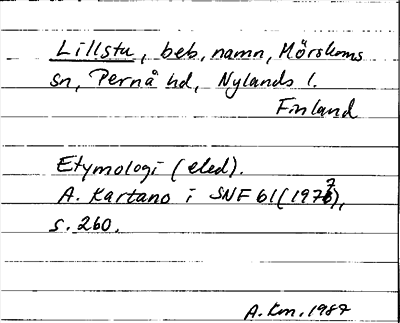 Lillstu, beb.namn, Mörskoms
sn, Pernå hd, Nylands l.
Finland
Etymologi (eled).
A. Kartano i SNF 61(1977),
s. 260.
A.Km. 1987